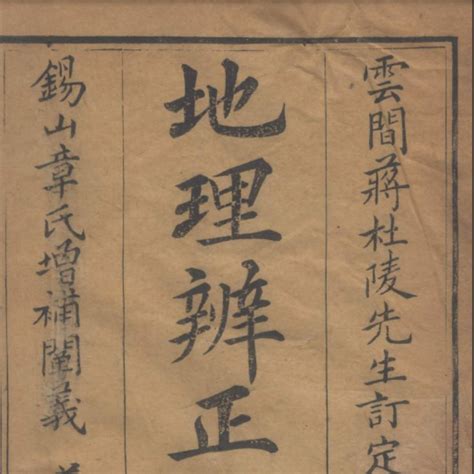 雲間蔣杜陵先生訂定
地理辨正
錫山章氏增補闡義